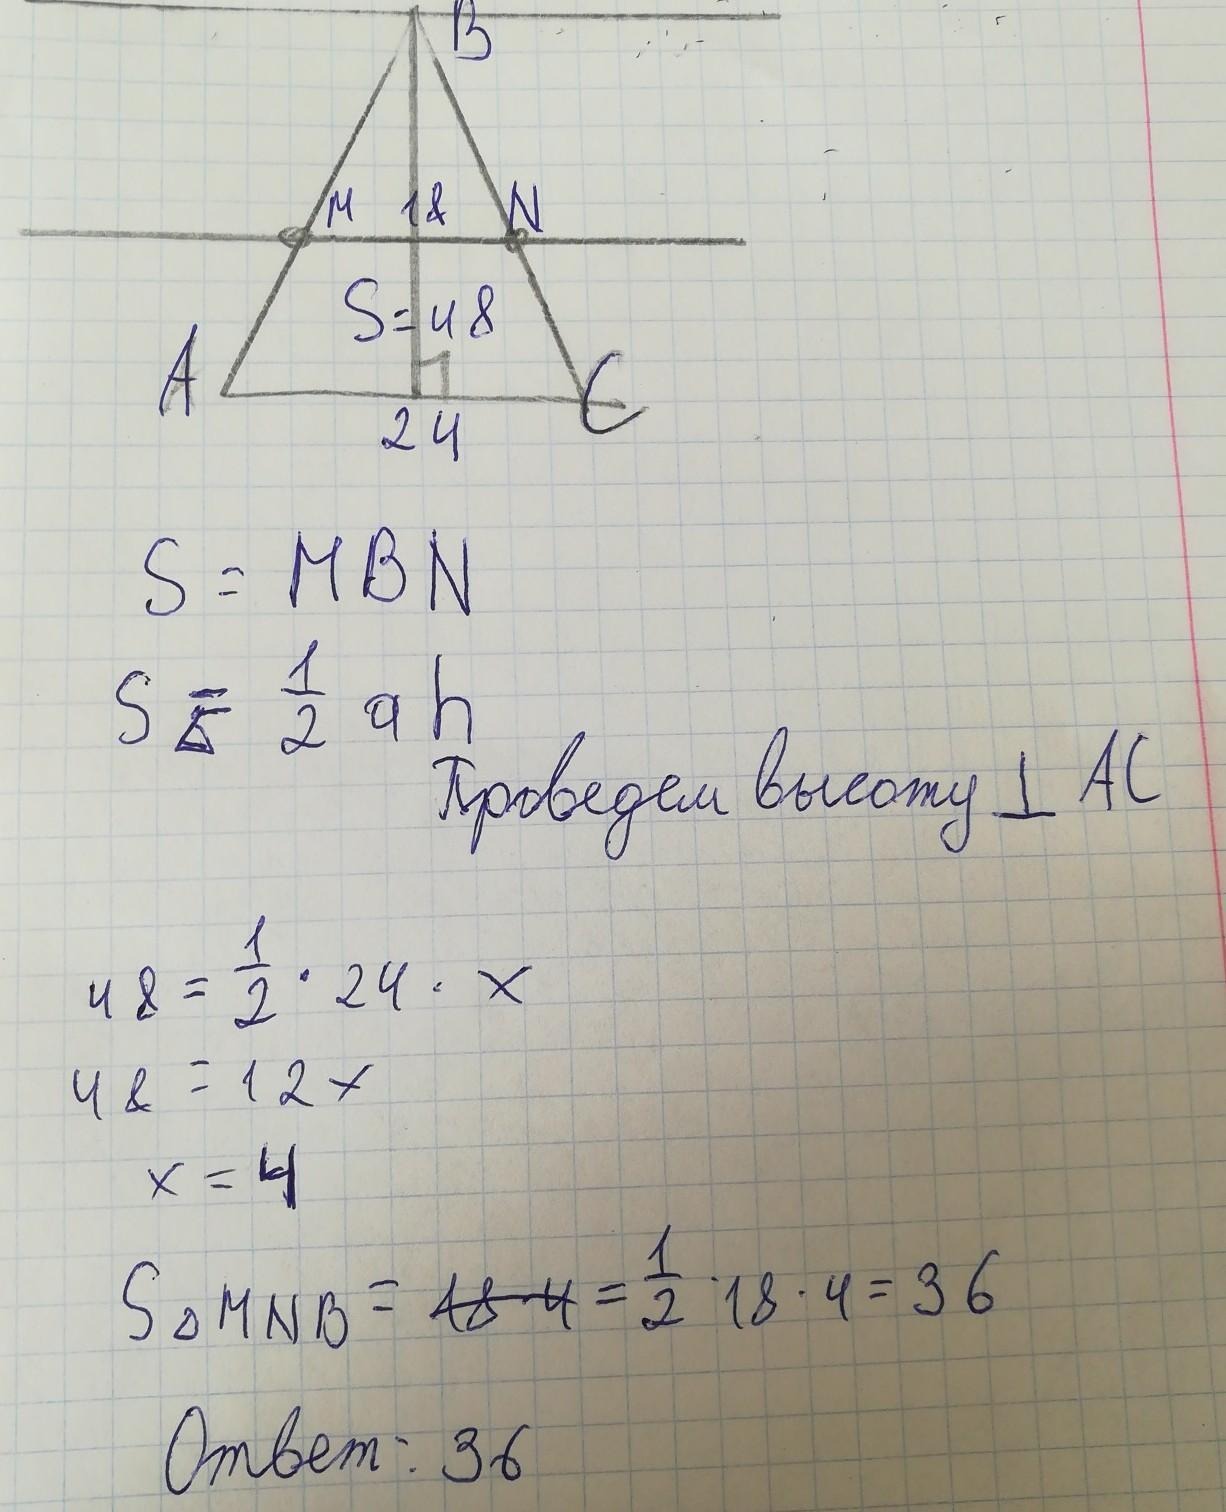 B
M 18 N
S=48
A C
24
S = MBN
S = 1/2 a h
Проведем высоту ⊥ AC
48 = 1/2 · 24 · x
48 = 12x
x = 4
S△MNB = 18·4 = 1/2 · 18 · 4 = 36
Ответ: 36